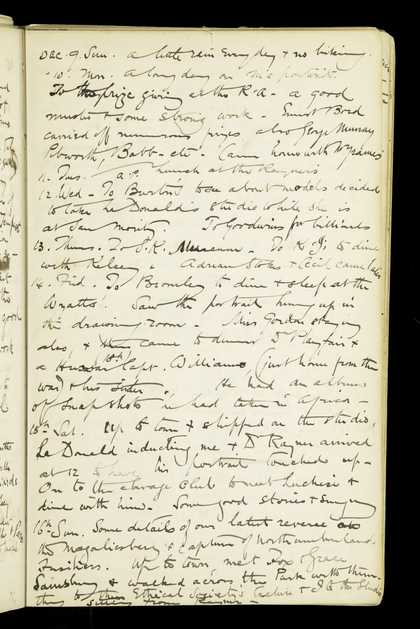 Dec. 9. Sun. a little rain every day & no biking.
10. Mon. A long day on 's portrait.
To the prize giving at the R.A. a good
number & some strong work - Ernest Board
carried off numerous prizes also George Murray,
Papworth, Babb - etc. Came home with
11. Tues. at lunch at the Rayners
12. Wed - To Burton to see about models decided
to take La Donald's studio while she is
at San Moritz. To Goodwins for billiards
13. Thurs. To S.K. Museum - To K to dine
with Kelsey & Adrian Stokes & Cecil came later
14. Frid. To Bromley to dine & sleep at the
Wyatts. Saw the portrait hung up in
the drawing room - Miss Gordon staying
also & came to dinner Dr Playfair &
a Capt. Williams (just home from the
war) & his sister. He had an album
of snapshots he had taken in Africa -
15th Sat. Up to town & stopped on the studio,
La Donald inducting me & Dr Rayner arrived
at 12 to have his portrait touched up -
On to the Savage Club to meet Luchesi &
dine with him - Some good stories & singing
16th Sun. Some details of our latest reverse at
the Magaliesberg & capture of Northumberland
Fusiliers. Up to town, met Fox & Grace
Sainsbury & walked across the Park with them -
they to their Ethical Society's lecture & I to the Studio